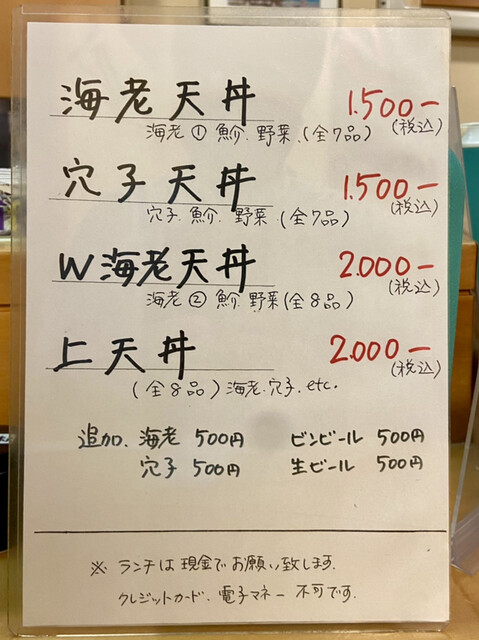 海老天丼 1.500ー
海老① 魪、野菜、(全7品) (税込)
穴子天丼 1.500ー
穴子、魪、野菜、(全7品) (税込)
W海老天丼 2.000ー
海老② 魪、野菜(全8品) (税込)
上天丼 2.000ー
(全8品)海老、穴子、etc. (税込)
追加、海老 500円 ビンビール 500円
穴子 500円 生ビール 500円
※ ランチは現金でお願い致します。
クレジットカード、電子マネー 不可です。